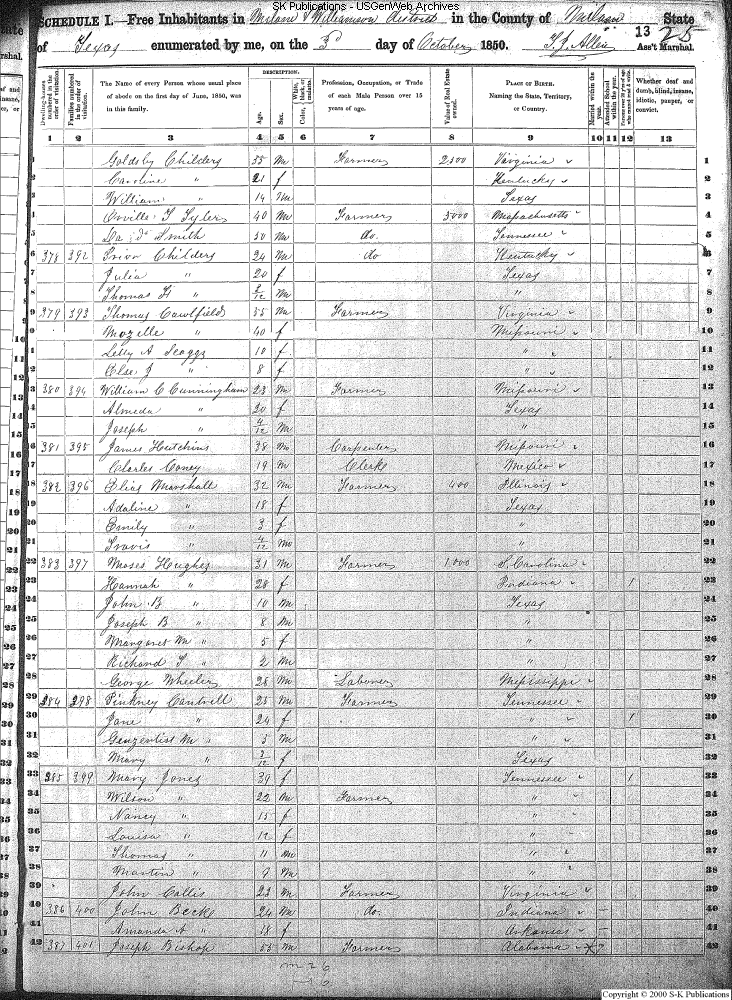 SK Publications - USGenWeb Archives
SCHEDULE I.—Free Inhabitants in Milam & Williamson Districts in the County of Milam State
of Texas enumerated by me, on the 3d day of October 1850. T. J. Allen Ass't Marshal.
13 25
DESCRIPTION.
Dwelling-houses numbered in the order of visitation.
Families numbered in the order of visitation.
The Name of every Person whose usual place of abode on the first day of June, 1850, was in this family.
Age.
Sex.
Color, White, black, or mulatto.
Profession, Occupation, or Trade of each Male Person over 15 years of age.
Value of Real Estate owned.
PLACE OF BIRTH. Naming the State, Territory, or Country.
Married within the year.
Attended School within the year.
Persons over 20 y'rs of age who cannot read & write.
Whether deaf and dumb, blind, insane, idiotic, pauper, or convict.
1 2 3 4 5 6 7 8 9 10 11 12 13
1 Goldsby Childers 35 M Farmer 2500 Virginia 1
2 Caroline " 21 f Kentucky 2
3 William " 14 M Texas 3
4 Orville T Tyler 40 M Farmer 3000 Massachusetts 4
5 Smith 50 M do Tennessee 5
6 378 392 Childers 24 M do Kentucky 6
7 Julia " 20 f Texas 7
8 Thomas H " 2/12 M " 8
9 379 393 Thomas Cawlfield 35 M Farmer Virginia 9
10 Mozelle " 40 f Missouri 10
11 Letty A Scaggs 10 f " 11
12 " 8 f " 12
13 380 394 William C Cunningham 23 M Farmer Missouri 13
14 Almeda " 20 f Texas 14
15 Joseph " 4/12 M " 15
16 381 395 James Hutchins 38 M Carpenter Missouri 16
17 Charles Coney 19 M Clerk Mexico 17
18 382 396 Elias Marshall 32 M Farmer 400 Illinois 18
19 Adaline " 18 f Texas 19
20 Emily " 3 f " 20
21 Travis " 4/12 M " 21
22 383 397 Moses Hughes 31 M Farmer 1,000 S. Carolina 22
23 Hannah " 28 f Indiana 1 23
24 John B " 10 M Texas 24
25 Joseph B " 8 M " 25
26 Margaret M " 5 f " 26
27 Richard T " 2 M " 27
28 George Wheeler 28 M Laborer Mississippi 28
29 384 398 Pinkney Cantrell 23 M Farmer Tennessee 29
30 Jane " 24 f " 1 30
31 M " 3 M " 31
32 Mary " 3/12 f Texas 32
33 385 399 Mary Jones 39 f Tennessee 1 33
34 Wilson " 22 M Farmer " 34
35 Nancy " 15 f " 35
36 Louisa " 12 f " 36
37 Thomas " 11 M " 37
38 Marton " 9 M " 38
39 John Collis 23 M Farmer Virginia 39
40 386 400 John Beck 24 M do. Indiana 40
41 Amanda A " 18 f Arkansas 41
42 387 401 Joseph Bishop 53 M Farmer Alabama 42
m 26
Copyright © 2000 S-K Publications